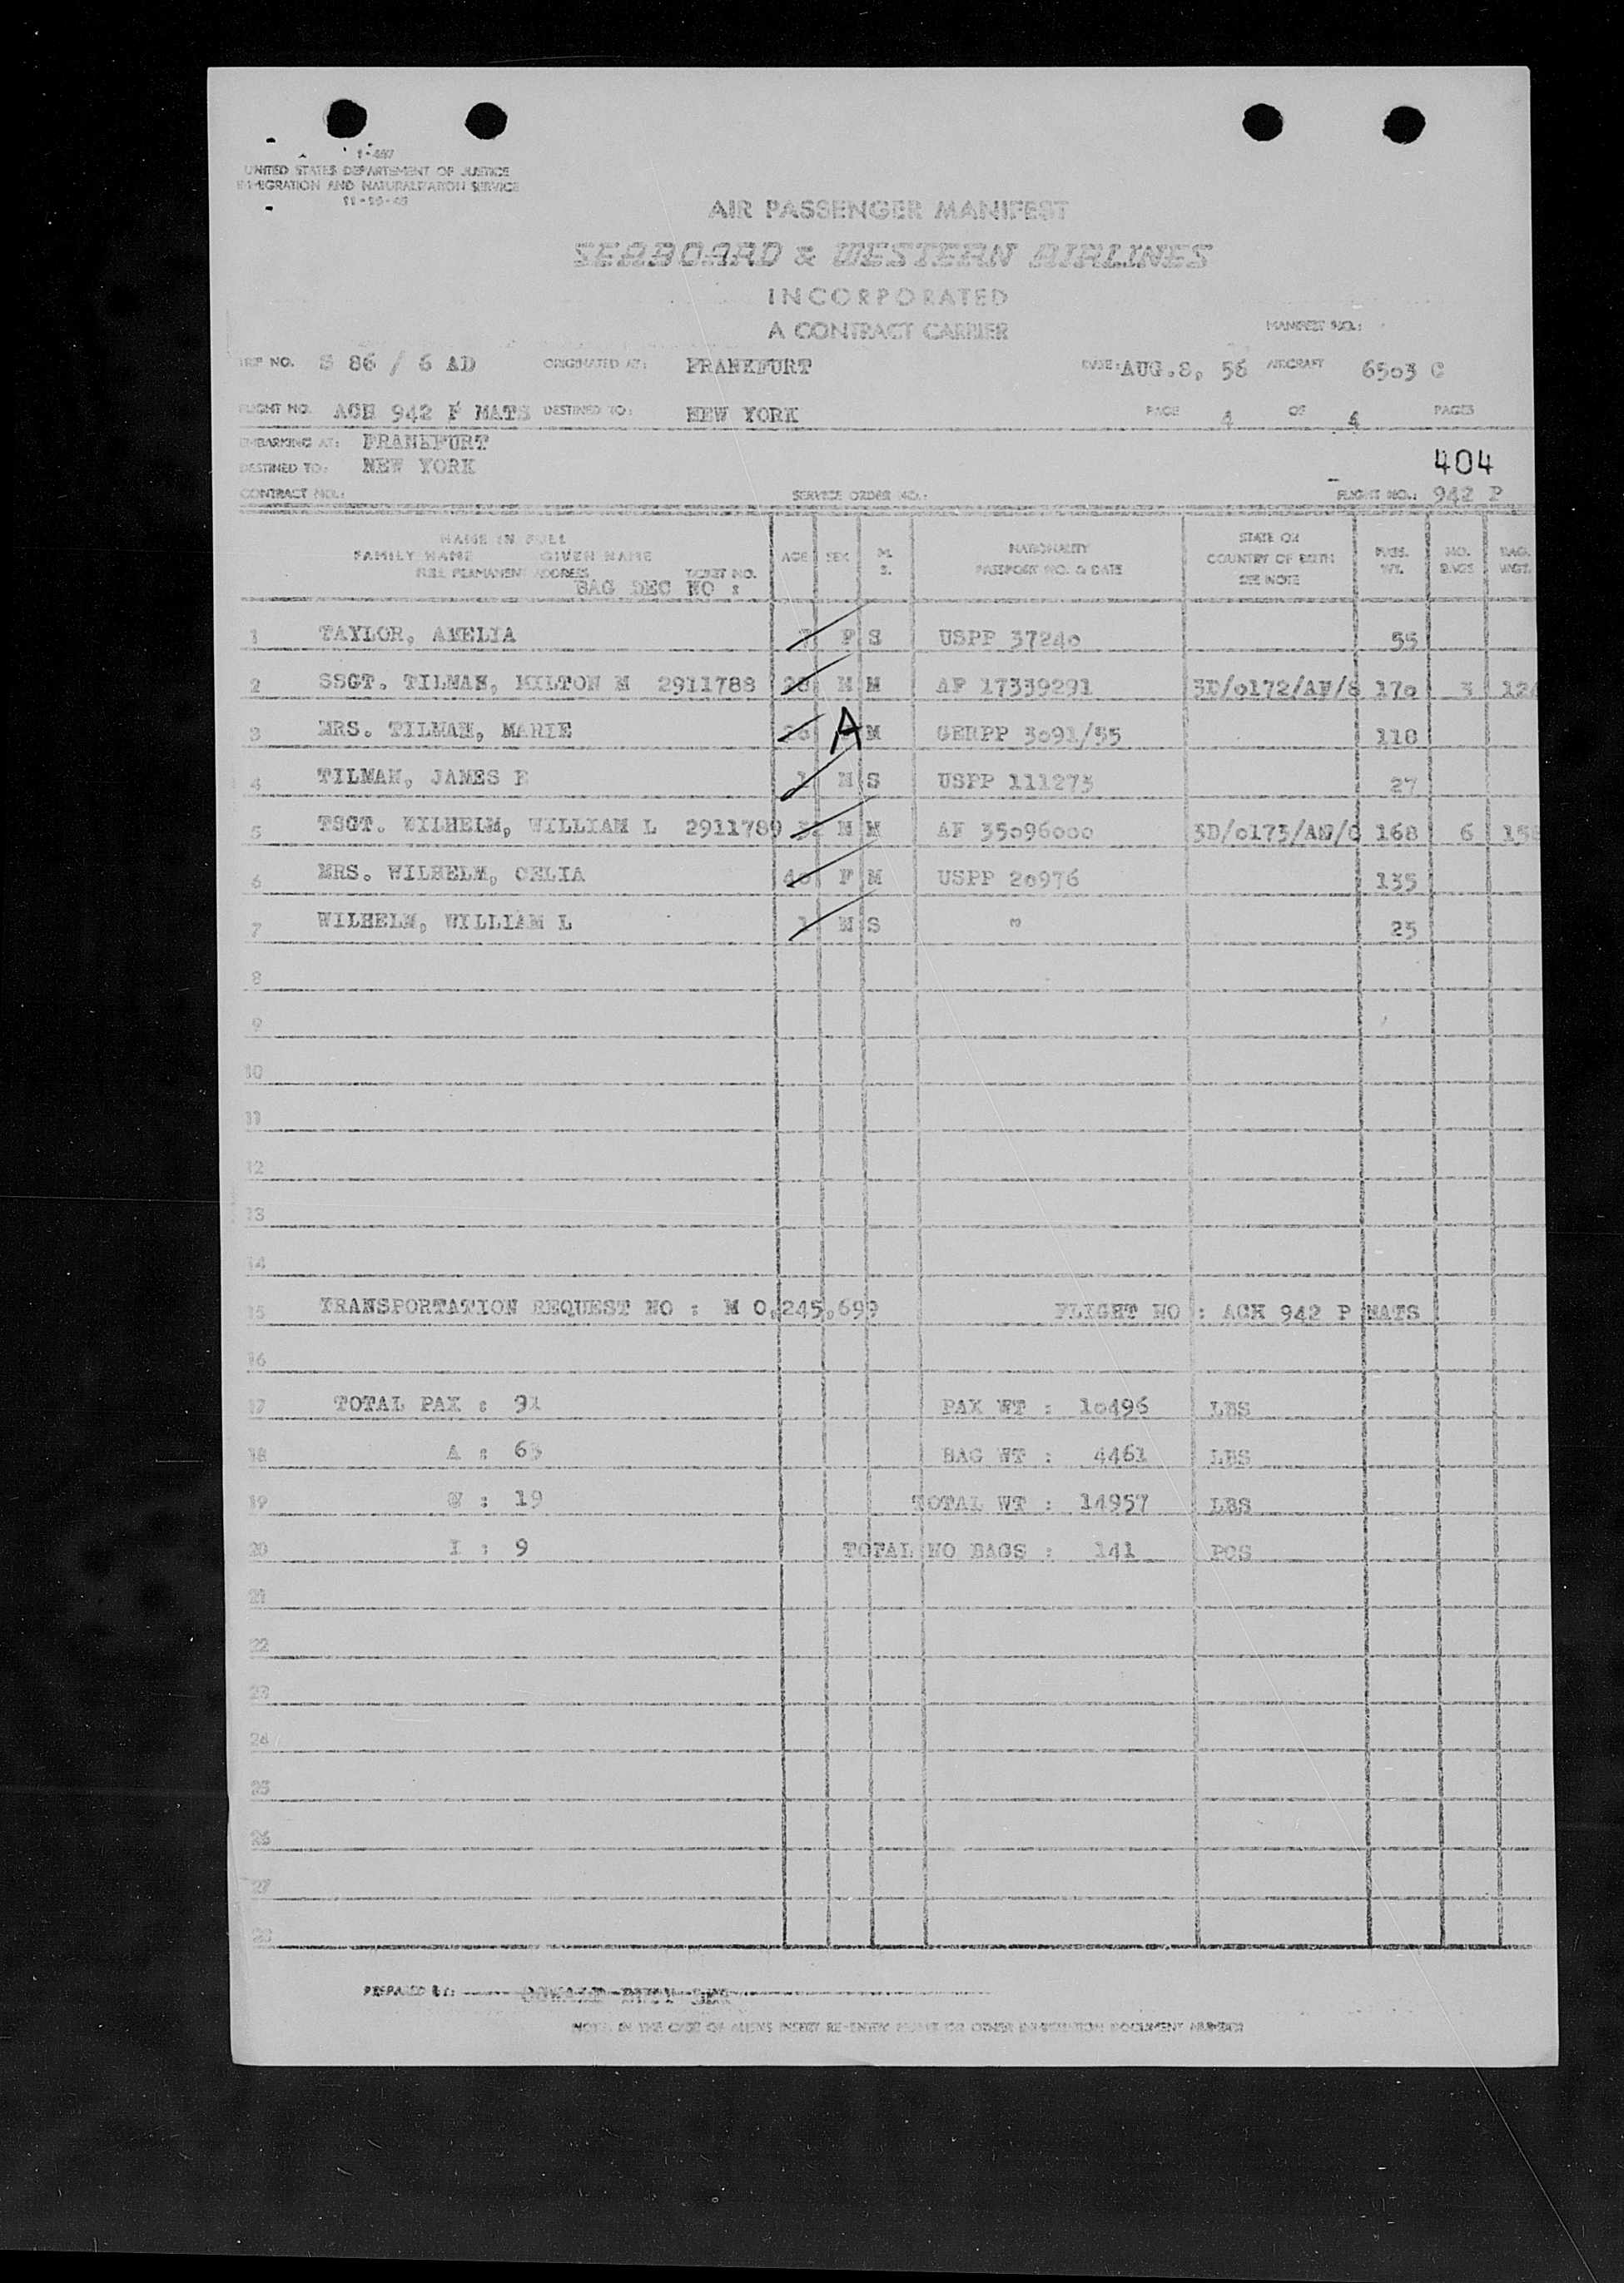 I-487
UNITED STATES DEPARTEMENT OF JUSTICE
IMMIGRATION AND NATURALIZATION SERVICE
AIR PASSENGER MANIFEST
SEABOARD & WESTERN AIRLINES
INCORPORATED
A CONTRACT CARRIER
MANIFEST NO.:
TRIP NO. S 86 / 6 AD ORIGINATED AT: FRANKFURT DATE: AUG.8, 56 AIRCRAFT 6503 C
FLIGHT NO. ACH 942 P MATS DESTINED TO: NEW YORK PAGE 4 OF 4 PAGES
EMBARKING AT: FRANKFURT
DESTINED TO: NEW YORK 404
CONTRACT NO.: SERVICE ORDER NO.: FLIGHT NO.: 942 P
NAME IN FULL
FAMILY NAME GIVEN NAME AGE SEX M. S. NATIONALITY PASSPORT NO. & DATE STATE OR COUNTRY OF BIRTH SEE NOTE PASS. WT. NO. BAGS BAG. WGT.
FULL PERMANENT ADDRESS TICKET NO.
BAG DEC NO :
1 TAYLOR, AMELIA F S USPP 37240 55
2 SSGT. TILMAN, MILTON M 2911788 28 M M AF 17339291 3D/0172/AF/ 170 3
3 MRS. TILMAN, MARIE A M GERPP 3091/55 118
4 TILMAN, JAMES E 1 M S USPP 111273 27
5 TSGT. WILHELM, WILLIAM L 2911789 M M AF 35096000 3D/0173/AF/ 168 6
6 MRS. WILHELM, CELIA 40 F M USPP 20976 135
7 WILHELM, WILLIAM L 1 M S " 25
8
9
10
11
12
13
14
15 TRANSPORTATION REQUEST NO : M 0,245,699 FLIGHT NO : ACH 942 P MATS
16
17 TOTAL PAX : 91 PAX WT : 10496 LBS
18 A : 63 BAG WT : 4461 LBS
19 C : 19 TOTAL WT : 14957 LBS
20 I : 9 TOTAL NO BAGS : 141 PCS
21
22
23
24
25
26
27
28
PREPARED BY:
NOTE. IN THE CASE OF ALIENS INSERT RE-ENTRY PERMIT OR OTHER IMMIGRATION DOCUMENT NUMBER